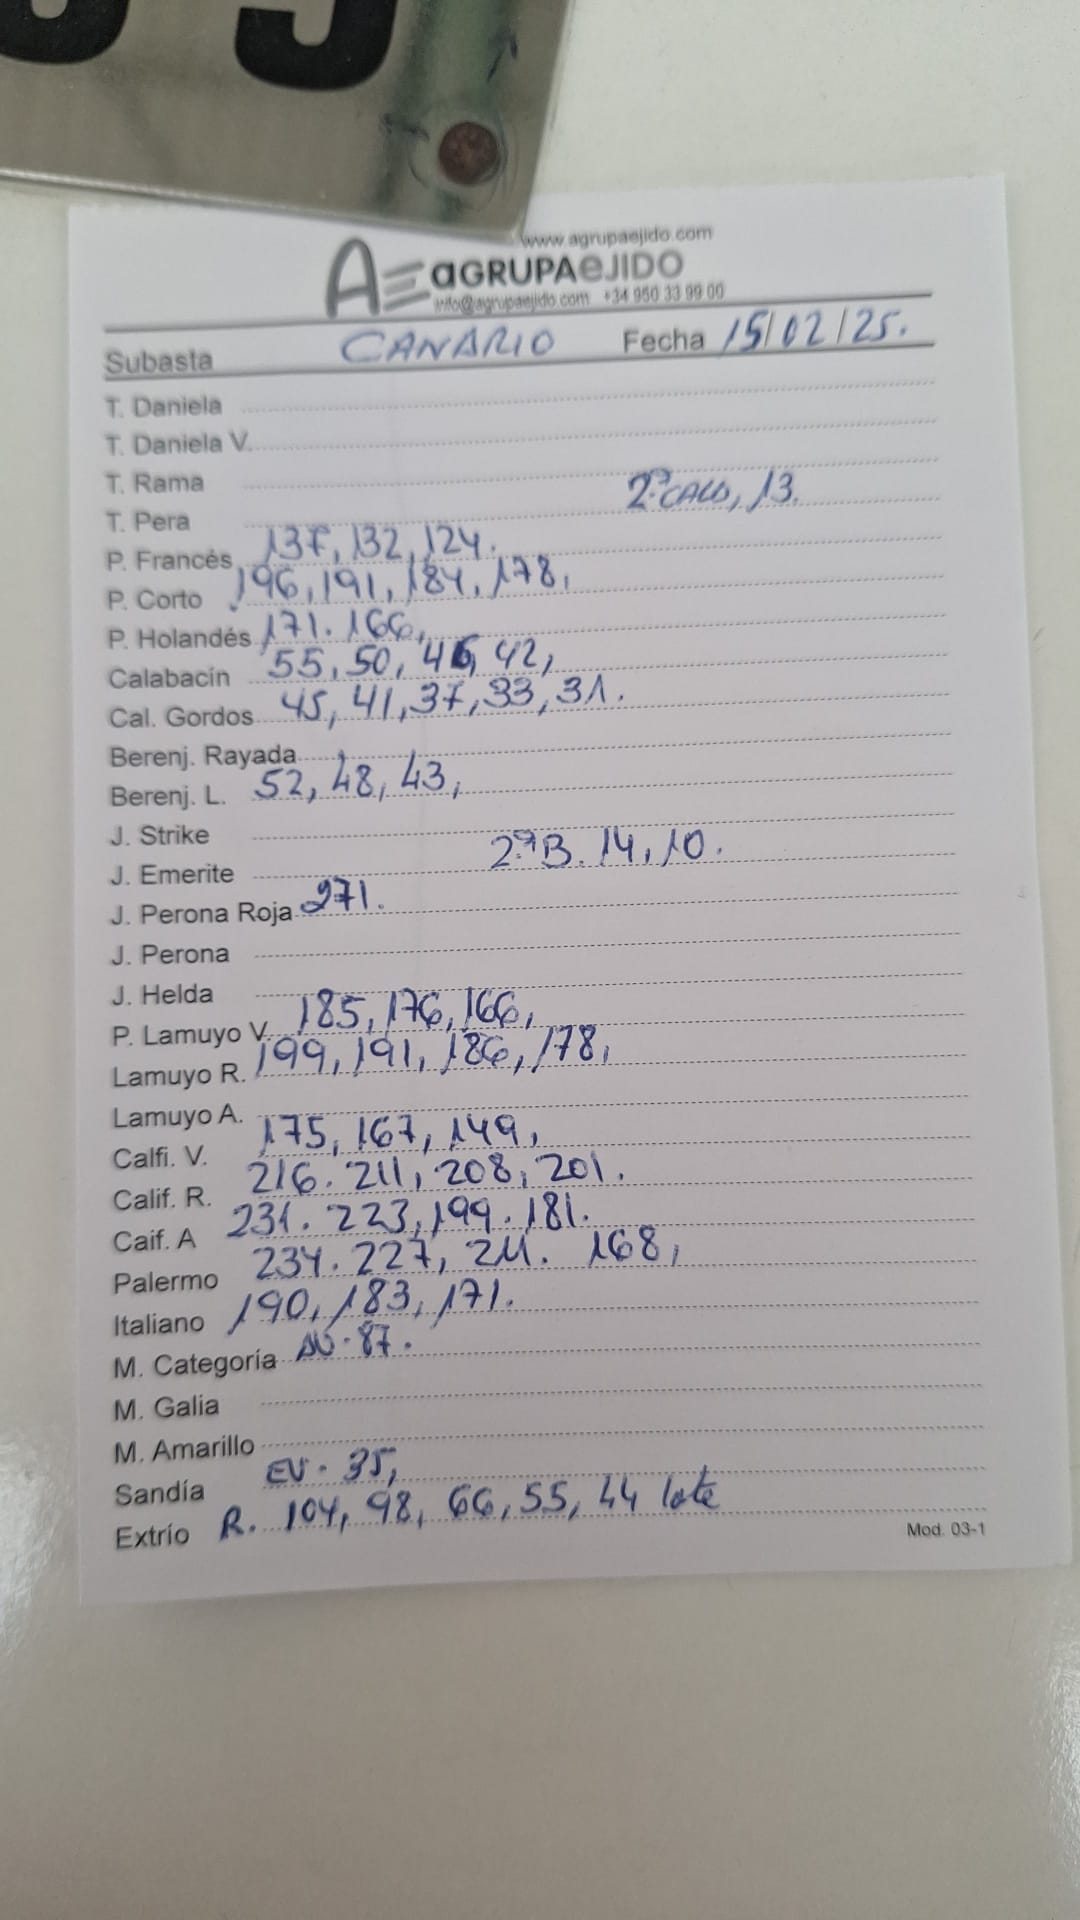 www.agrupaejido.com
AE aGRUPAeJIDO
info@agrupaejido.com +34 950 33 99 00
Subasta CANARIO Fecha 15/02/25.
T. Daniela
T. Daniela V.
T. Rama
2ª CALD, 13.
T. Pera
P. Francés 137, 132, 124.
P. Corto 196, 191, 184, 178,
P. Holandés 171. 166,
Calabacín 55, 50, 46, 42,
Cal. Gordos 45, 41, 37, 33, 31.
Berenj. Rayada
Berenj. L. 52, 48, 43,
J. Strike
2ª B. 14, 10.
J. Emerite
J. Perona Roja 271.
J. Perona
J. Helda
P. Lamuyo V. 185, 176, 166,
Lamuyo R. 199, 191, 186, 178,
Lamuyo A.
Calfi. V. 175, 167, 149,
Calif. R. 216. 211, 208, 201.
Caif. A 231. 223, 199. 181.
Palermo 234. 227, 211. 168,
Italiano 190, 183, 171.
M. Categoría 87.
M. Galia
M. Amarillo
Sandía EV. 35,
Extrío R. 104, 98, 66, 55, 44 lote
Mod. 03-1